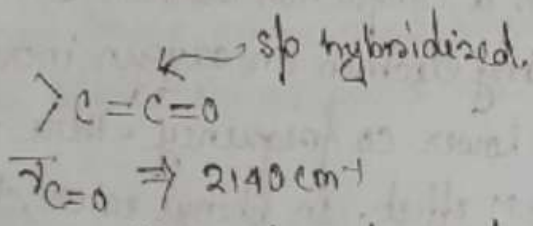 sp hybridized.
>C=C=O
ν̅C=O ⇒ 2140 cm⁻¹